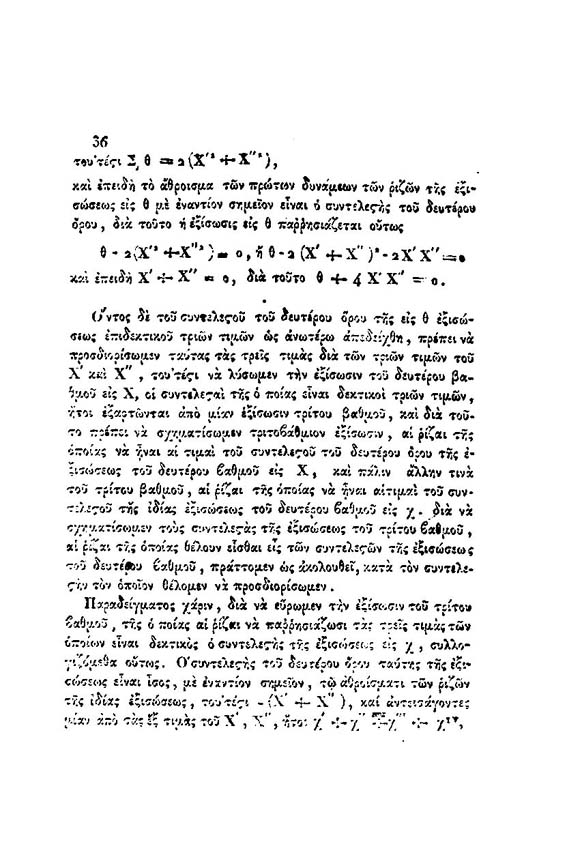 36
του'τέςι Σ, θ = 2 (Χ'² + Χ''²),
καὶ ἐπειδὴ τὸ ἄθροισμα τῶν πρώτων δυνάμεων τῶν ῥιζῶν τῆς ἐξι-
σώσεως εἰς θ μὲ ἐναντίον σημεῖον εἶναι ὁ συντελεςὴς τοῦ δευτέρου
ὅρου, διὰ τοῦτο ἡ ἐξίσωσις εἰς θ παῤῥησιάζεται οὕτως
θ - 2 (Χ'² + Χ''²) = 0, ἤ θ - 2 (Χ' + Χ'')² - 2Χ' Χ'' = 0
καὶ ἐπειδὴ Χ' + Χ'' = 0, διὰ τοῦτο θ + 4 Χ' Χ'' = 0.
Ὄντος δὲ τοῦ συντελεςοῦ τοῦ δευτέρου ὅρου τῆς εἰς θ ἐξισώ-
σεως ἐπιδεκτικοῦ τριῶν τιμῶν ὡς ἀνωτέρω ἀπεδείχθη, πρέπει νὰ
προσδιορίσωμεν ταύτας τὰς τρεῖς τιμὰς διὰ τῶν τριῶν τιμῶν τοῦ
Χ' καὶ Χ'', του'τέςι νὰ λύσωμεν τὴν ἐξίσωσιν τοῦ δευτέρου βα-
θμοῦ εἰς Χ, οἱ συντελεςαὶ τῆς ὁποίας εἶναι δεκτικοὶ τριῶν τιμῶν,
ἤτοι ἐξαρτῶνται ἀπὸ μίαν ἐξίσωσιν τρίτου βαθμοῦ, καὶ διὰ τοῦ-
το πρέπει νὰ σχηματίσωμεν τριτοβάθμιον ἐξίσωσιν, αἱ ῥίζαι τῆς
ὁποίας νὰ ἦναι αἱ τιμαὶ τοῦ συντελεςοῦ τοῦ δευτέρου ὅρου τῆς ἐ-
ξισώσεως τοῦ δευτέρου βαθμοῦ εἰς Χ, καὶ πάλιν ἄλλην τινὰ
τοῦ τρίτου βαθμοῦ, αἱ ῥίζαι τῆς ὁποίας νὰ ἦναι αἱ τιμαὶ τοῦ συν-
τελεςοῦ τῆς ἰδίας ἐξισώσεως τοῦ δευτέρου βαθμοῦ εἰς χ. διὰ νὰ
σχηματίσωμεν τοὺς συντελεςὰς τῆς ἐξισώσεως τοῦ τρίτου βαθμοῦ,
αἱ ῥίζαι τῆς ὁποίας θέλουν εἶσθαι εἷς τῶν συντελεςῶν τῆς ἐξισώσεως
τοῦ δευτέρου βαθμοῦ, πράττομεν ὡς ἀκολουθεῖ, κατὰ τὸν συντελε-
ςὴν τὸν ὁποῖον θέλομεν νὰ προσδιορίσωμεν.
Παραδείγματος χάριν, διὰ νὰ εὕρωμεν τὴν ἐξίσωσιν τοῦ τρίτου
βαθμοῦ, τῆς ὁποίας αἱ ῥίζαι νὰ παῤῥησιάζωσι τὰς τρεῖς τιμὰς τῶν
ὁποίων εἶναι δεκτικὸς ὁ συντελεςὴς τῆς ἐξισώσεως εἰς χ, συλλο-
γιζόμεθα οὕτως. Ὁ συντελεςὴς τοῦ δευτέρου ὅρου ταύτης τῆς ἐξι-
σώσεως εἶναι ἴσος, μὲ ἐναντίον σημεῖον, τῷ ἀθροίσματι τῶν ῥιζῶν
τῆς ἰδίας ἐξισώσεως, του'τέςι - (Χ' + Χ''), καὶ ἀντεισάγοντες
μίαν ἀπὸ τὰς ἓξ τιμὰς τοῦ Χ', Χ'', ἤτοι χ' + χ'' + χ''' + χ<sup>ιν</sup>,